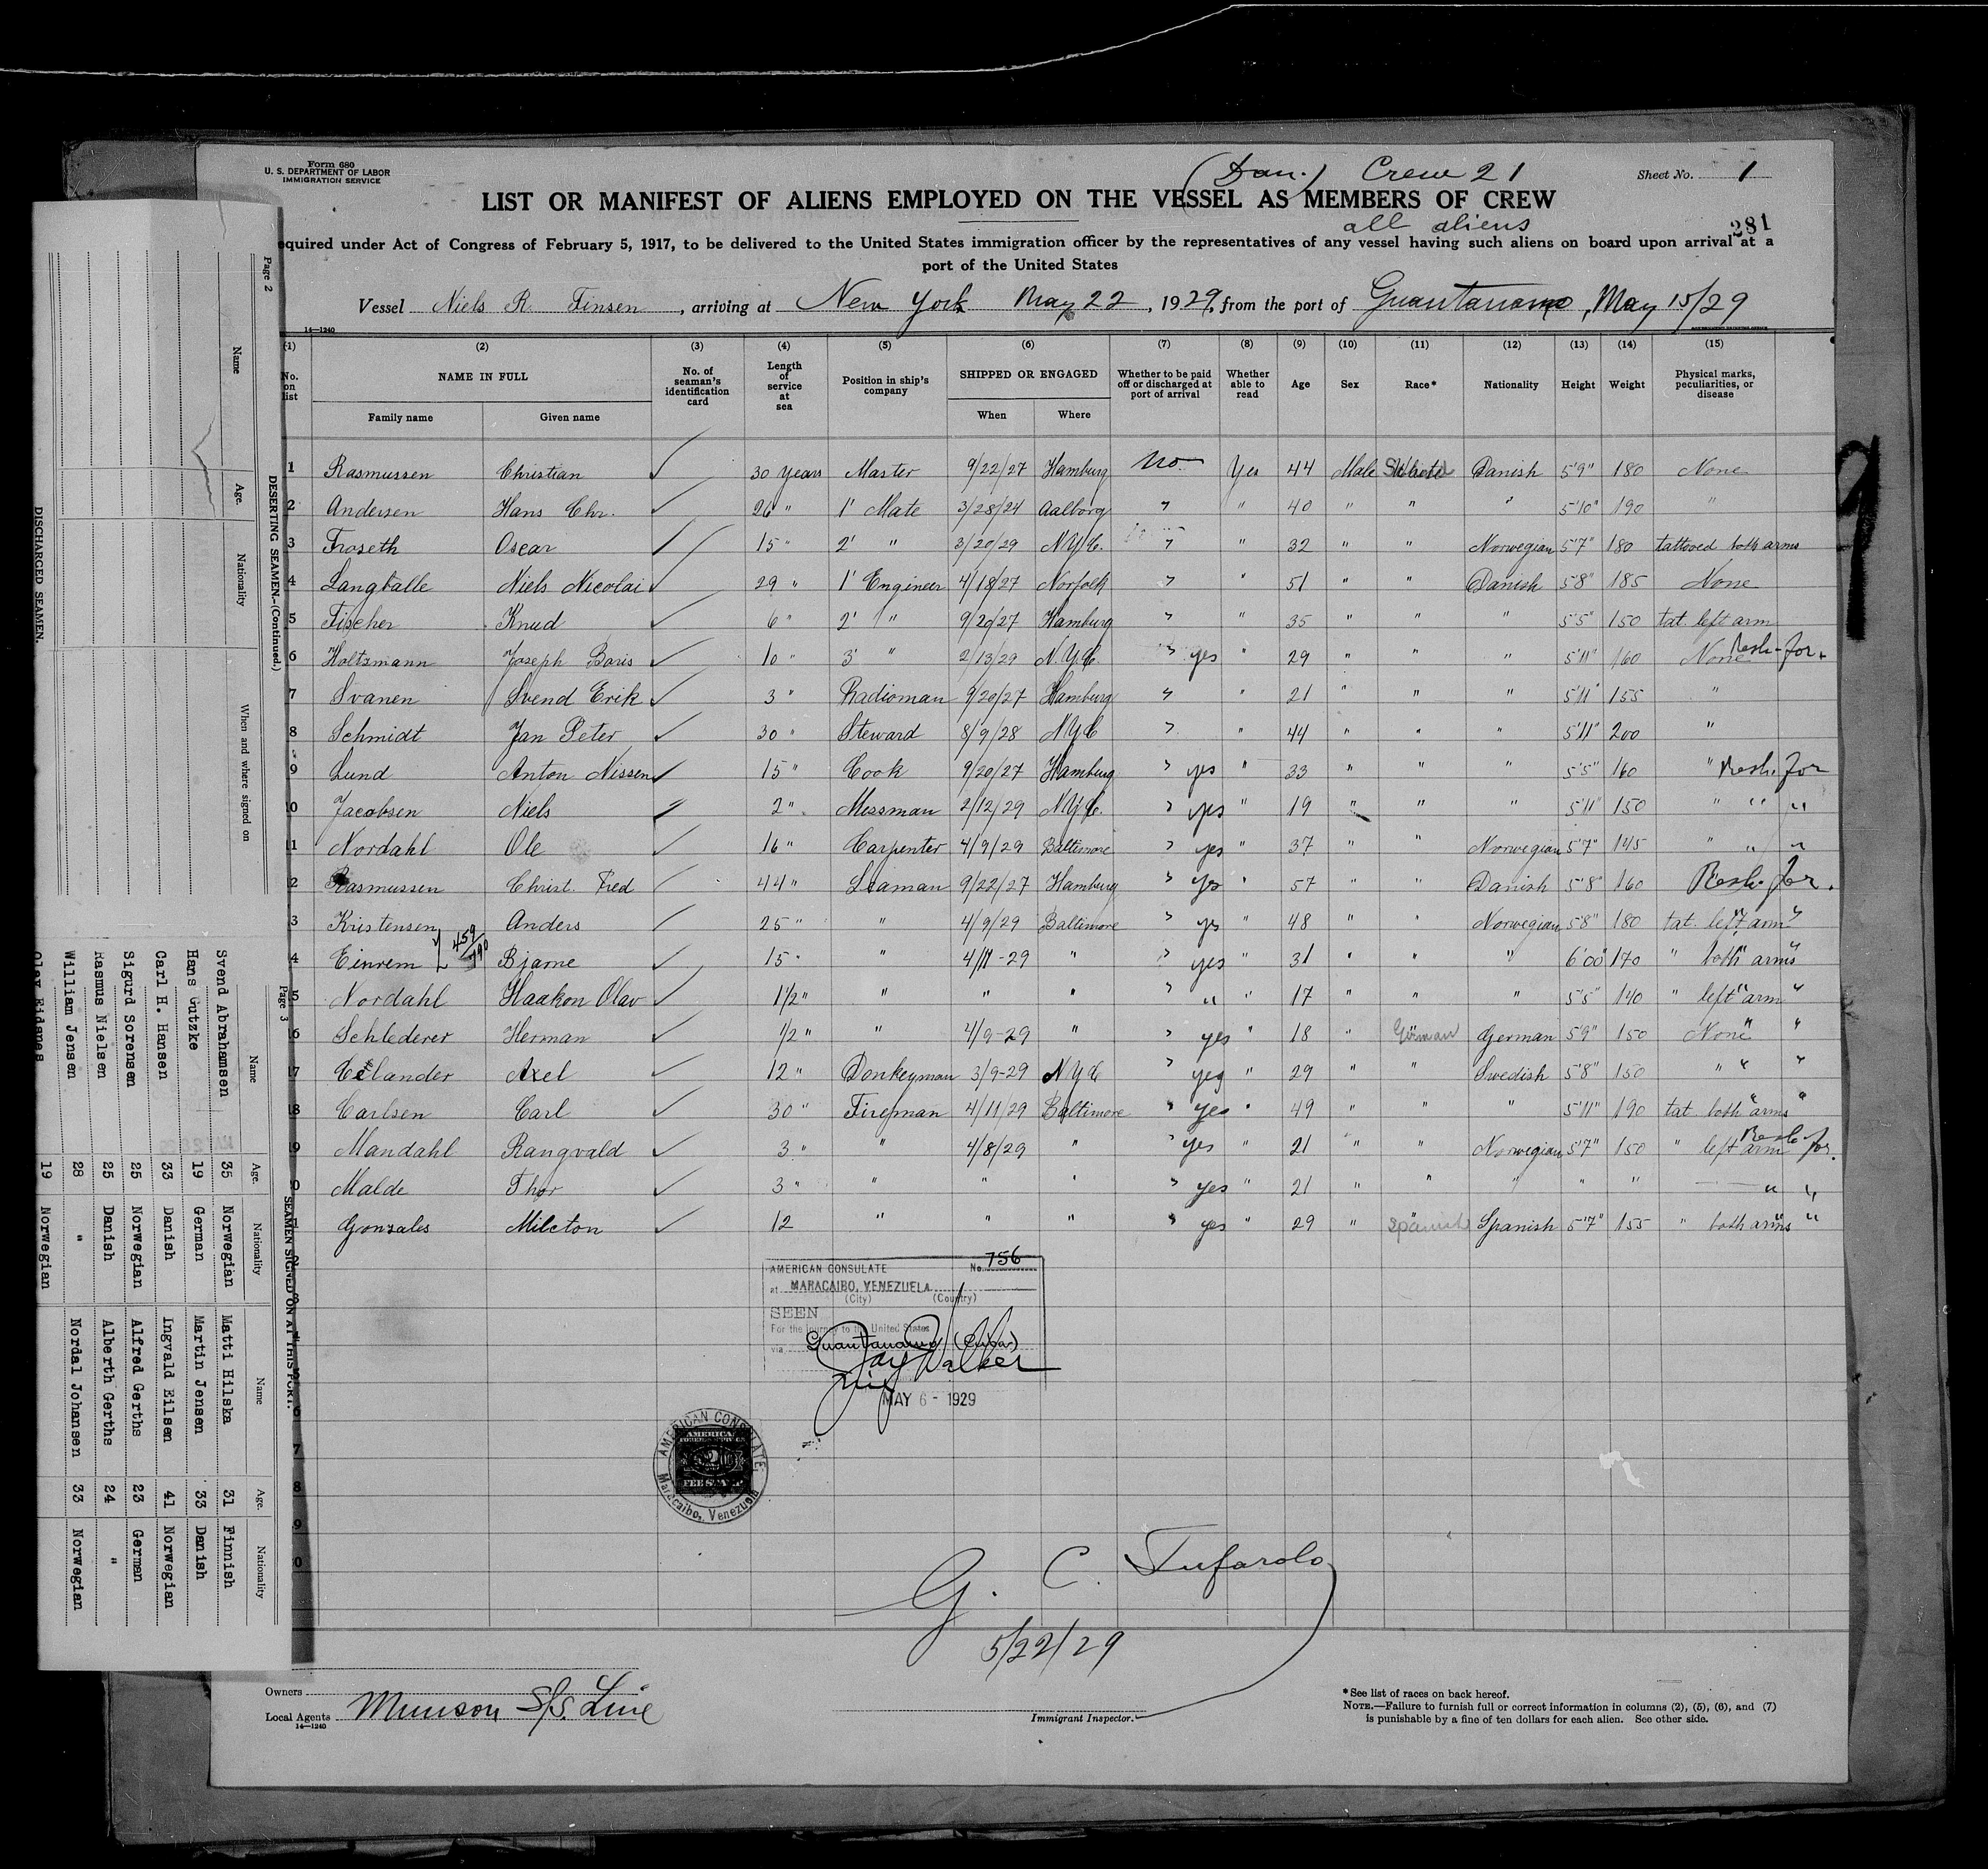 Form 680
U. S. DEPARTMENT OF LABOR
IMMIGRATION SERVICE
(Dan.) Crew 21
Sheet No. 1
LIST OR MANIFEST OF ALIENS EMPLOYED ON THE VESSEL AS MEMBERS OF CREW
all aliens
281
quired under Act of Congress of February 5, 1917, to be delivered to the United States immigration officer by the representatives of any vessel having such aliens on board upon arrival at a
port of the United States
Vessel Niels R. Finsen, arriving at New York May 22, 1929, from the port of Guantanamo, May 15/29
14—1240
(1) (2) (3) (4) (5) (6) (7) (8) (9) (10) (11) (12) (13) (14) (15)
No. on list NAME IN FULL No. of seaman's identification card Length of service at sea Position in ship's company SHIPPED OR ENGAGED Whether to be paid off or discharged at port of arrival Whether able to read Age Sex Race* Nationality Height Weight Physical marks, peculiarities, or disease
Family name Given name When Where
1 Rasmussen Christian ✓ 30 years Master 9/22/27 Hamburg No. Yes 44 Male Danish 5'9" 180 None
2 Andersen Hans Chr. ✓ 26 " 1' Mate 3/28/24 Aalborg " " 40 " " " 5'10" 190 "
3 Froseth Oscar ✓ 15 " 2' " 3/20/29 N.Y.C. " " 32 " " Norwegian 5'7" 180 tattooed both arms
4 Langballe Niels Nicolai ✓ 29 " 1' Engineer 4/18/27 Norfolk " " 51 " " Danish 5'8" 185 None
5 Fischer Knud ✓ 6 " 2' " 9/20/27 Hamburg " " 35 " " " 5'5" 150 tat. left arm
6 Holtzmann Joseph Boris ✓ 10 " 3' " 2/13/29 N.Y.C. " yes " 29 " " " 5'11" 160 None Resh. for.
7 Svanen Svend Erik ✓ 3 " Radioman 9/20/27 Hamburg " " 21 " " " 5'11" 155 "
8 Schmidt Jan Peter ✓ 30 " Steward 8/9/28 N.Y.C " " 44 " " " 5'11" 200 "
9 Lund Anton Nissen ✓ 15 " Cook 9/20/27 Hamburg " yes " 33 " " " 5'5" 160 " Resh. for
10 Jacobsen Niels ✓ 2 " Messman 2/12/29 N.Y.C. " yes " 19 " " " 5'11" 150 " " "
11 Nordahl Ole ✓ 16 " Carpenter 4/9/29 Baltimore " yes " 37 " " Norwegian 5'7" 145 " " "
2 Rasmussen Christ. Fred ✓ 44 " Seaman 9/22/27 Hamburg " yes " 57 " " Danish 5'8" 160 Resh. for.
3 Kristensen Anders ✓ 25 " " 4/9/29 Baltimore " yes " 48 " " Norwegian 5'8" 180 tat. left arm "
4 Einrem Bjarne ✓ 15 " " 4/11-29 " " yes " 31 " " " 6'00" 170 " both arms "
5 Nordahl Haakon Olav ✓ 1½ " " " " " " " 17 " " " 5'5" 140 " left arm "
16 Schlederer Herman ✓ ½ " " 4/9-29 " " yes " 18 " German German 5'9" 150 None " "
17 Axel ✓ 12 " Donkeyman 3/9-29 N.Y.C " yes " 29 " " Swedish 5'8" 150 " " "
18 Carlsen Carl ✓ 30 " Fireman 4/11/29 Baltimore " yes " 49 " " " 5'11" 190 tat. both arms "
19 Mandahl Rangvald ✓ 3 " " 4/8/29 " " yes " 21 " " Norwegian 5'7" 150 " left arm Resh. for.
0 Malde Thor ✓ 3 " " " " " yes " 21 " " " " " " "
1 Gonzales Milcton ✓ 12 " " " " yes " 29 " Spanish Spanish 5'7" 155 " both arms "
AMERICAN CONSULATE No. 756
at MARACAIBO, VENEZUELA
(City) (Country)
SEEN
For the journey to the United States
via Guantanamo (Cuba)
Jay Walker
MAY 6 - 1929
AMERICAN CONSULATE
Maracaibo, Venezuela
FEE STAMP
G. C. Tufarolo
5/22/29
Immigrant Inspector.
Owners
Local Agents Munson S/S. Line
14—1240
*See list of races on back hereof.
NOTE.—Failure to furnish full or correct information in columns (2), (5), (6), and (7)
is punishable by a fine of ten dollars for each alien. See other side.
Page 2
DESERTING SEAMEN.—(Continued.)
Name Age. Nationality When and where signed on
DISCHARGED SEAMEN.
Page 3
SEAMEN SIGNED ON AT THIS PORT.
Name Age. Nationality Name Age. Nationality
Svend Abrahamsen 35 Norwegian Matti Hilska 31 Finnish
Hans Gutzke 19 German Martin Jensen 33 Danish
Carl H. Hansen 33 Danish Ingvald Eilsen 41 Norwegian
Sigurd Sorensen 25 Norwegian Alfred Gerths 23 German
Rasmus Nielsen 25 Danish Alberth Gerths 24 "
William Jensen 28 " Nordal Johansen 33 Norwegian
Olav Eidsnes 19 Norwegian